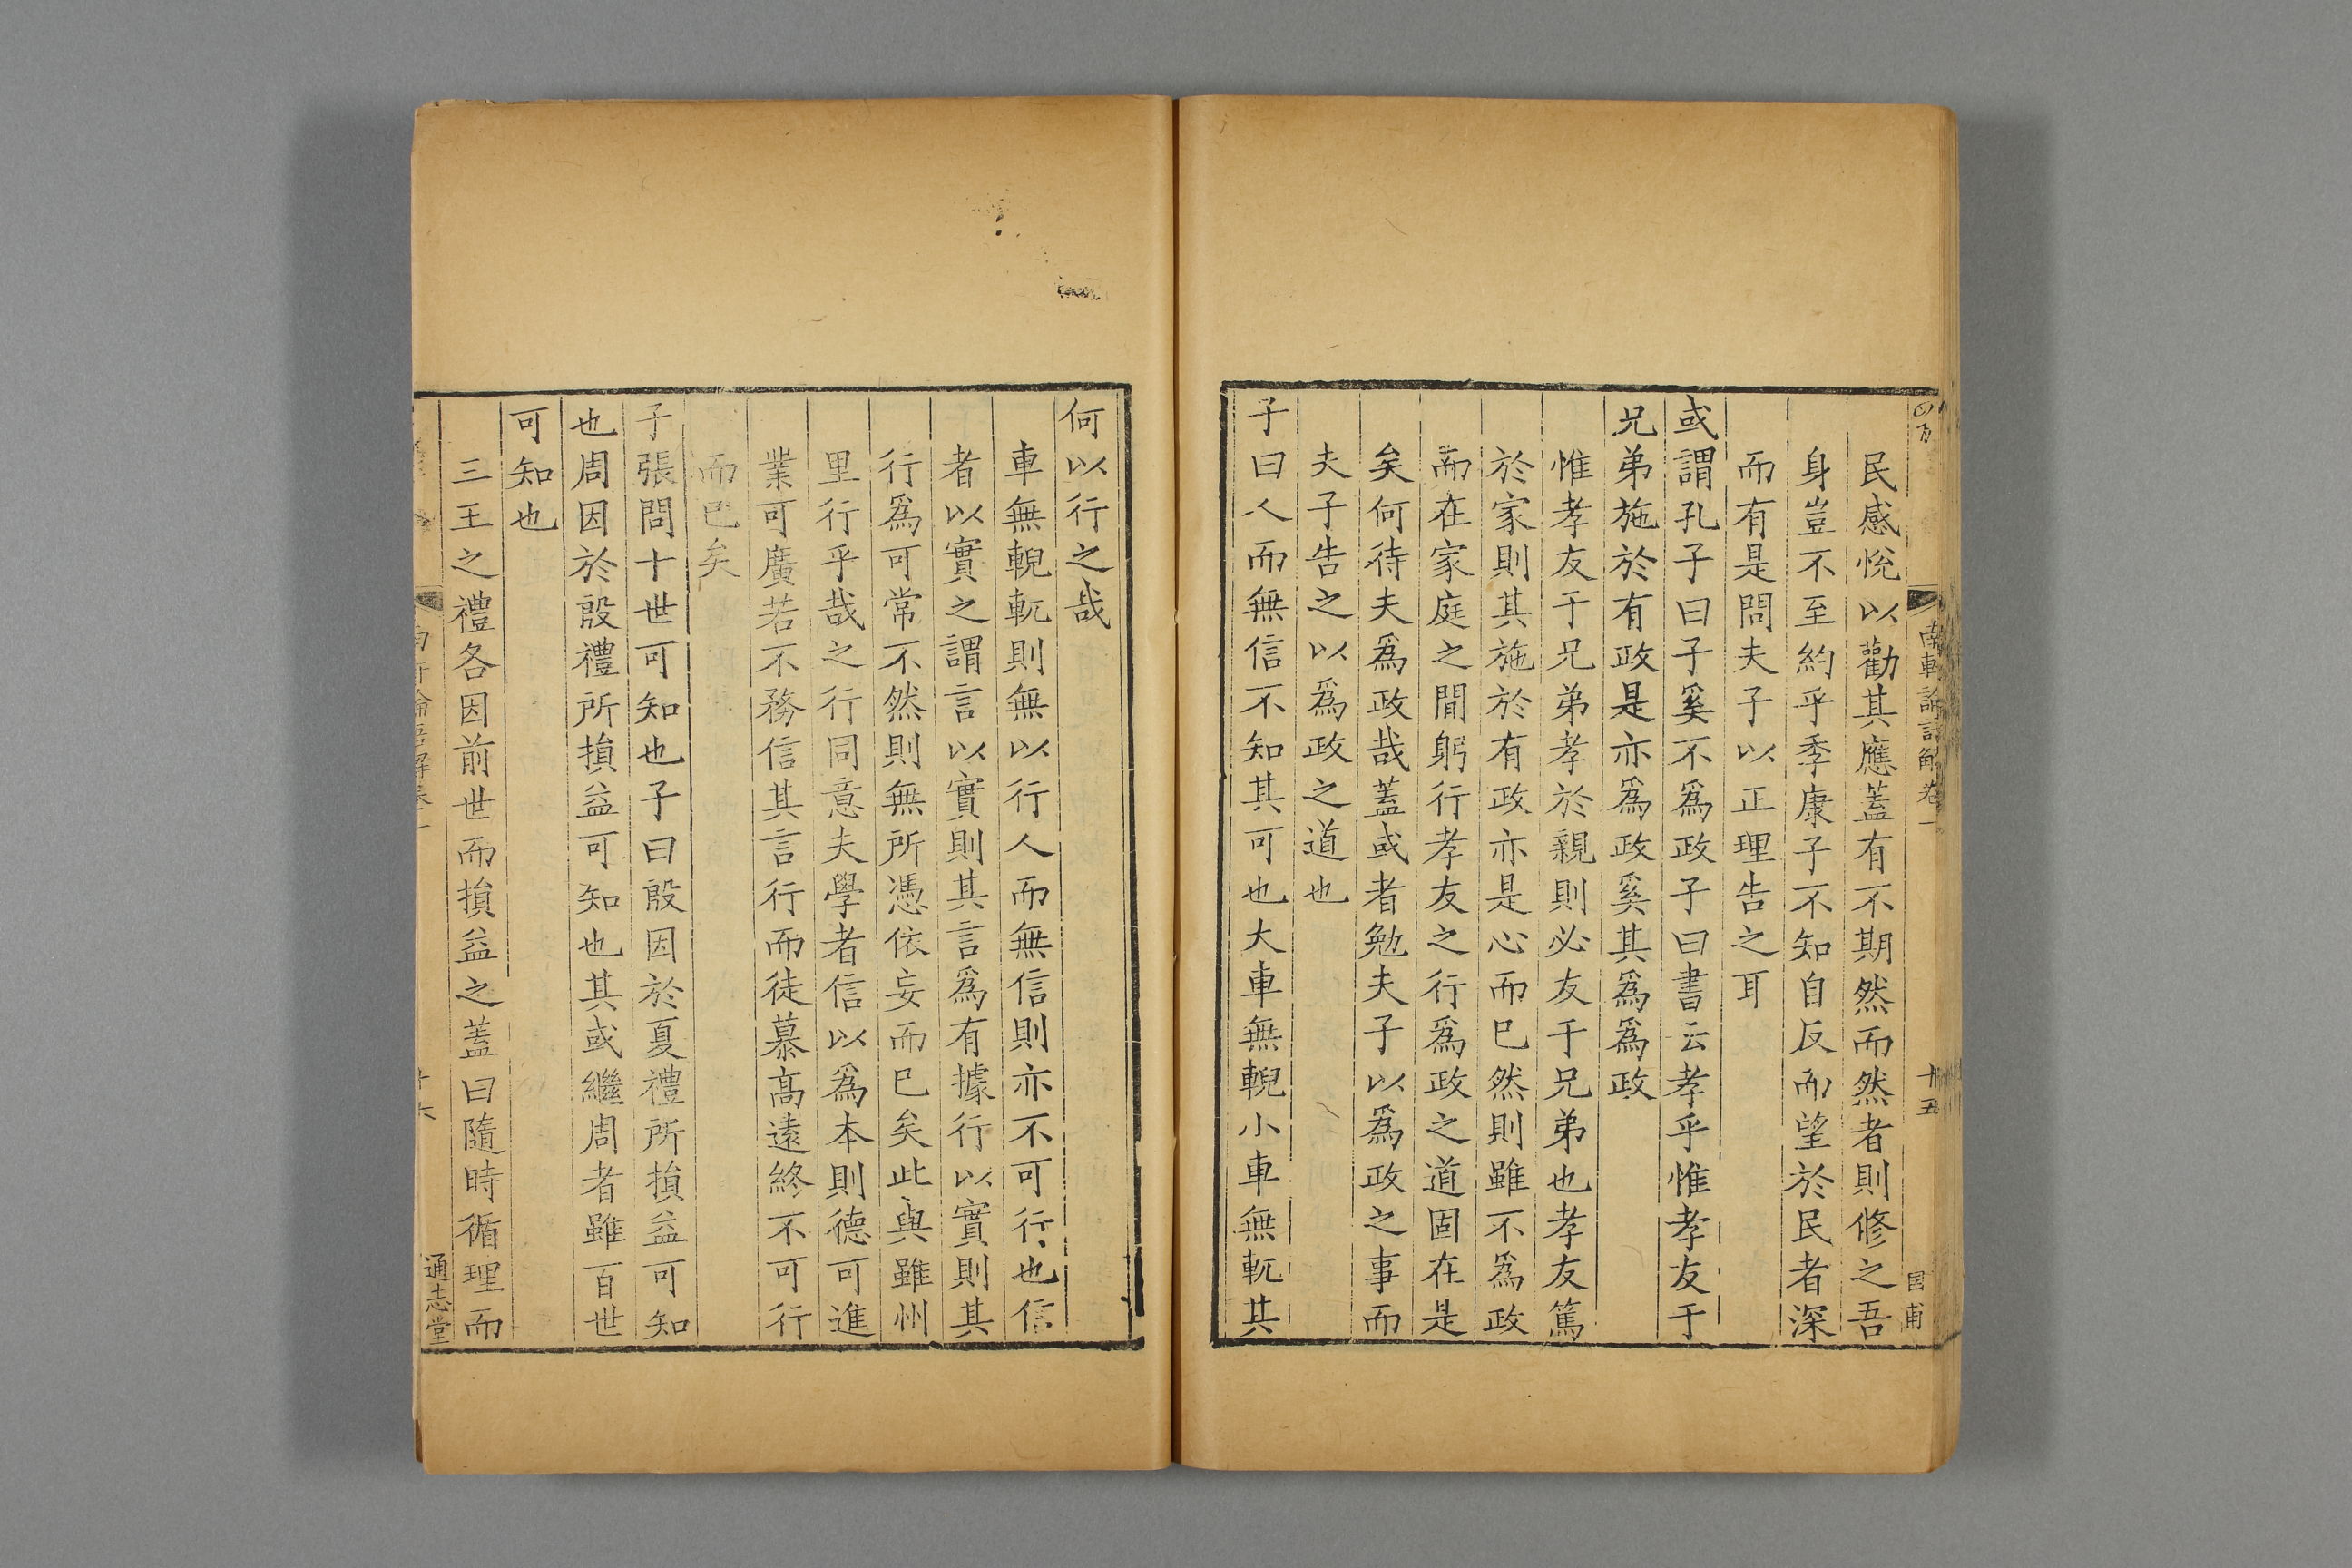 南軒論語解卷一
十五
国甫
民感悅以勸其應蓋有不期然而然者則修之吾
身豈不至約乎季康子不知自反而望於民者深
而有是問夫子以正理告之耳
或謂孔子曰子奚不爲政子曰書云孝乎惟孝友于
兄弟施於有政是亦爲政奚其爲爲政
惟孝友于兄弟孝於親則必友于兄弟也孝友篤
於家則其施於有政亦是心而巳然則雖不爲政
而在家庭之間躬行孝友之行爲政之道固在是
矣何待夫爲政哉蓋或者勉夫子以爲政之事而
夫子告之以爲政之道也
子曰人而無信不知其可也大車無輗小車無軏其
何以行之哉
車無輗軏則無以行人而無信則亦不可行也信
者以實之謂言以實則其言爲有據行以實則其
行爲可常不然則無所憑依妄而巳矣此與雖州
里行乎哉之行同意夫學者信以爲本則德可進
業可廣若不務信其言行而徒慕高遠終不可行
而巳矣
子張問十世可知也子曰殷因於夏禮所損益可知
也周因於殷禮所損益可知也其或繼周者雖百世
可知也
三王之禮各因前世而損益之蓋曰隨時循理而
通志堂